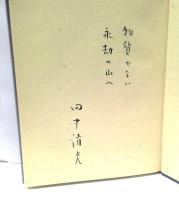 物質でない
永劫の山へ
田中清光